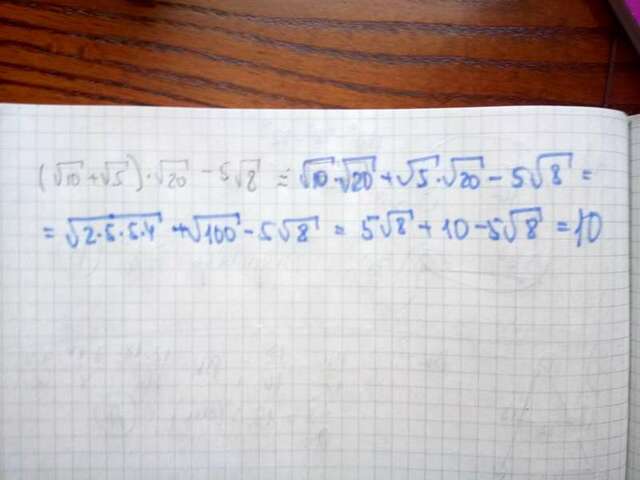 (√10 + √5) · √20 − 5√8 = √10 · √20 + √5 · √20 − 5√8 =
= √2·5·5·4 + √100 − 5√8 = 5√8 + 10 − 5√8 = 10